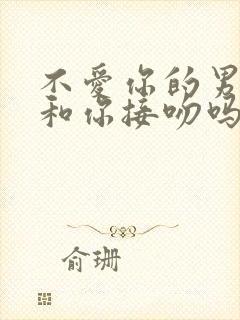 不爱你的男
和你接吻吗
俞珊